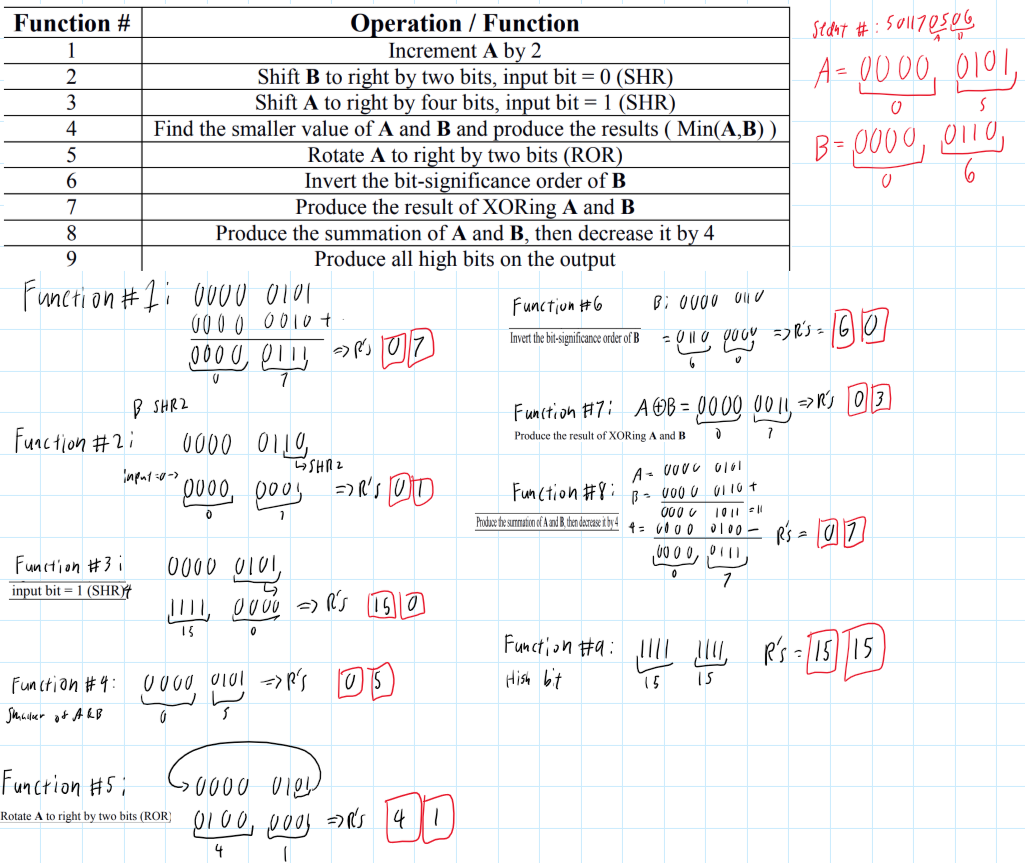 Function # Operation / Function
1 Increment A by 2
2 Shift B to right by two bits, input bit = 0 (SHR)
3 Shift A to right by four bits, input bit = 1 (SHR)
4 Find the smaller value of A and B and produce the results ( Min(A,B) )
5 Rotate A to right by two bits (ROR)
6 Invert the bit-significance order of B
7 Produce the result of XORing A and B
8 Produce the summation of A and B, then decrease it by 4
9 Produce all high bits on the output
Stdnt #: 501170506
A B
A = 0000 0101
0 5
B = 0000 0110
0 6
Function #1: 0000 0101
0000 0010 +
0000 0111 => R's 0 7
0 7
B SHR2
Function #2: 0000 0110
↳ SHR2
input=0 -> 0000 0001 => R's 0 1
0 1
Function #3: 0000 0101
input bit = 1 (SHR)4
1111 0000 => R's 15 0
15 0
Function #4: 0000 0101 => R's 0 5
Smaller of A&B 0 5
Function #5: 0000 0101
Rotate A to right by two bits (ROR) 0100 0001 => R's 4 1
4 1
Function #6 B: 0000 0110
Invert the bit-significance order of B = 0110 0000 => R's = 6 0
6 0
Function #7: A⊕B = 0000 0011 => R's 0 3
Produce the result of XORing A and B 0 7
A = 0000 0101
Function #8: B = 0000 0110 +
0000 1011 = 11
Produce the summation of A and B, then decrease it by 4 4 = 0000 0100 -
R's = 0 7
0000 0111
0 7
Function #9: 1111 1111 R's = 15 15
High bit 15 15